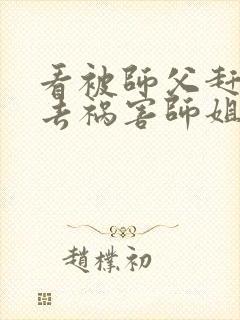 看被師父赶
去祸害師姐
趙樸初